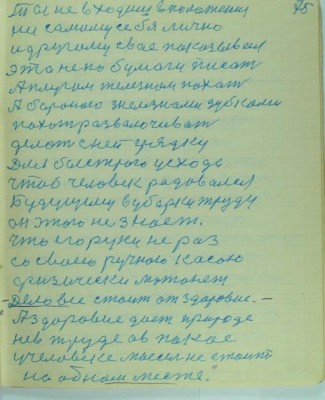 75
Та не входит в положения
ни самому себя лично
и другому свае показывал
это не по бумаги писат
А плугом железном пахат
А бароною железнами зубками
пахот развалочиват
делат с ней грядку
Для быстрого усхода
чтоб человек радовался
Будущему в уборки труду
он этого не знает.
что его руки не раз
со своею ручною касою
физически мотанет
Дело все стоит от здоровие. –
"А здоровие дает природе
не в труде а в пакое
учеловеке мысел не стоит
на одном месте."